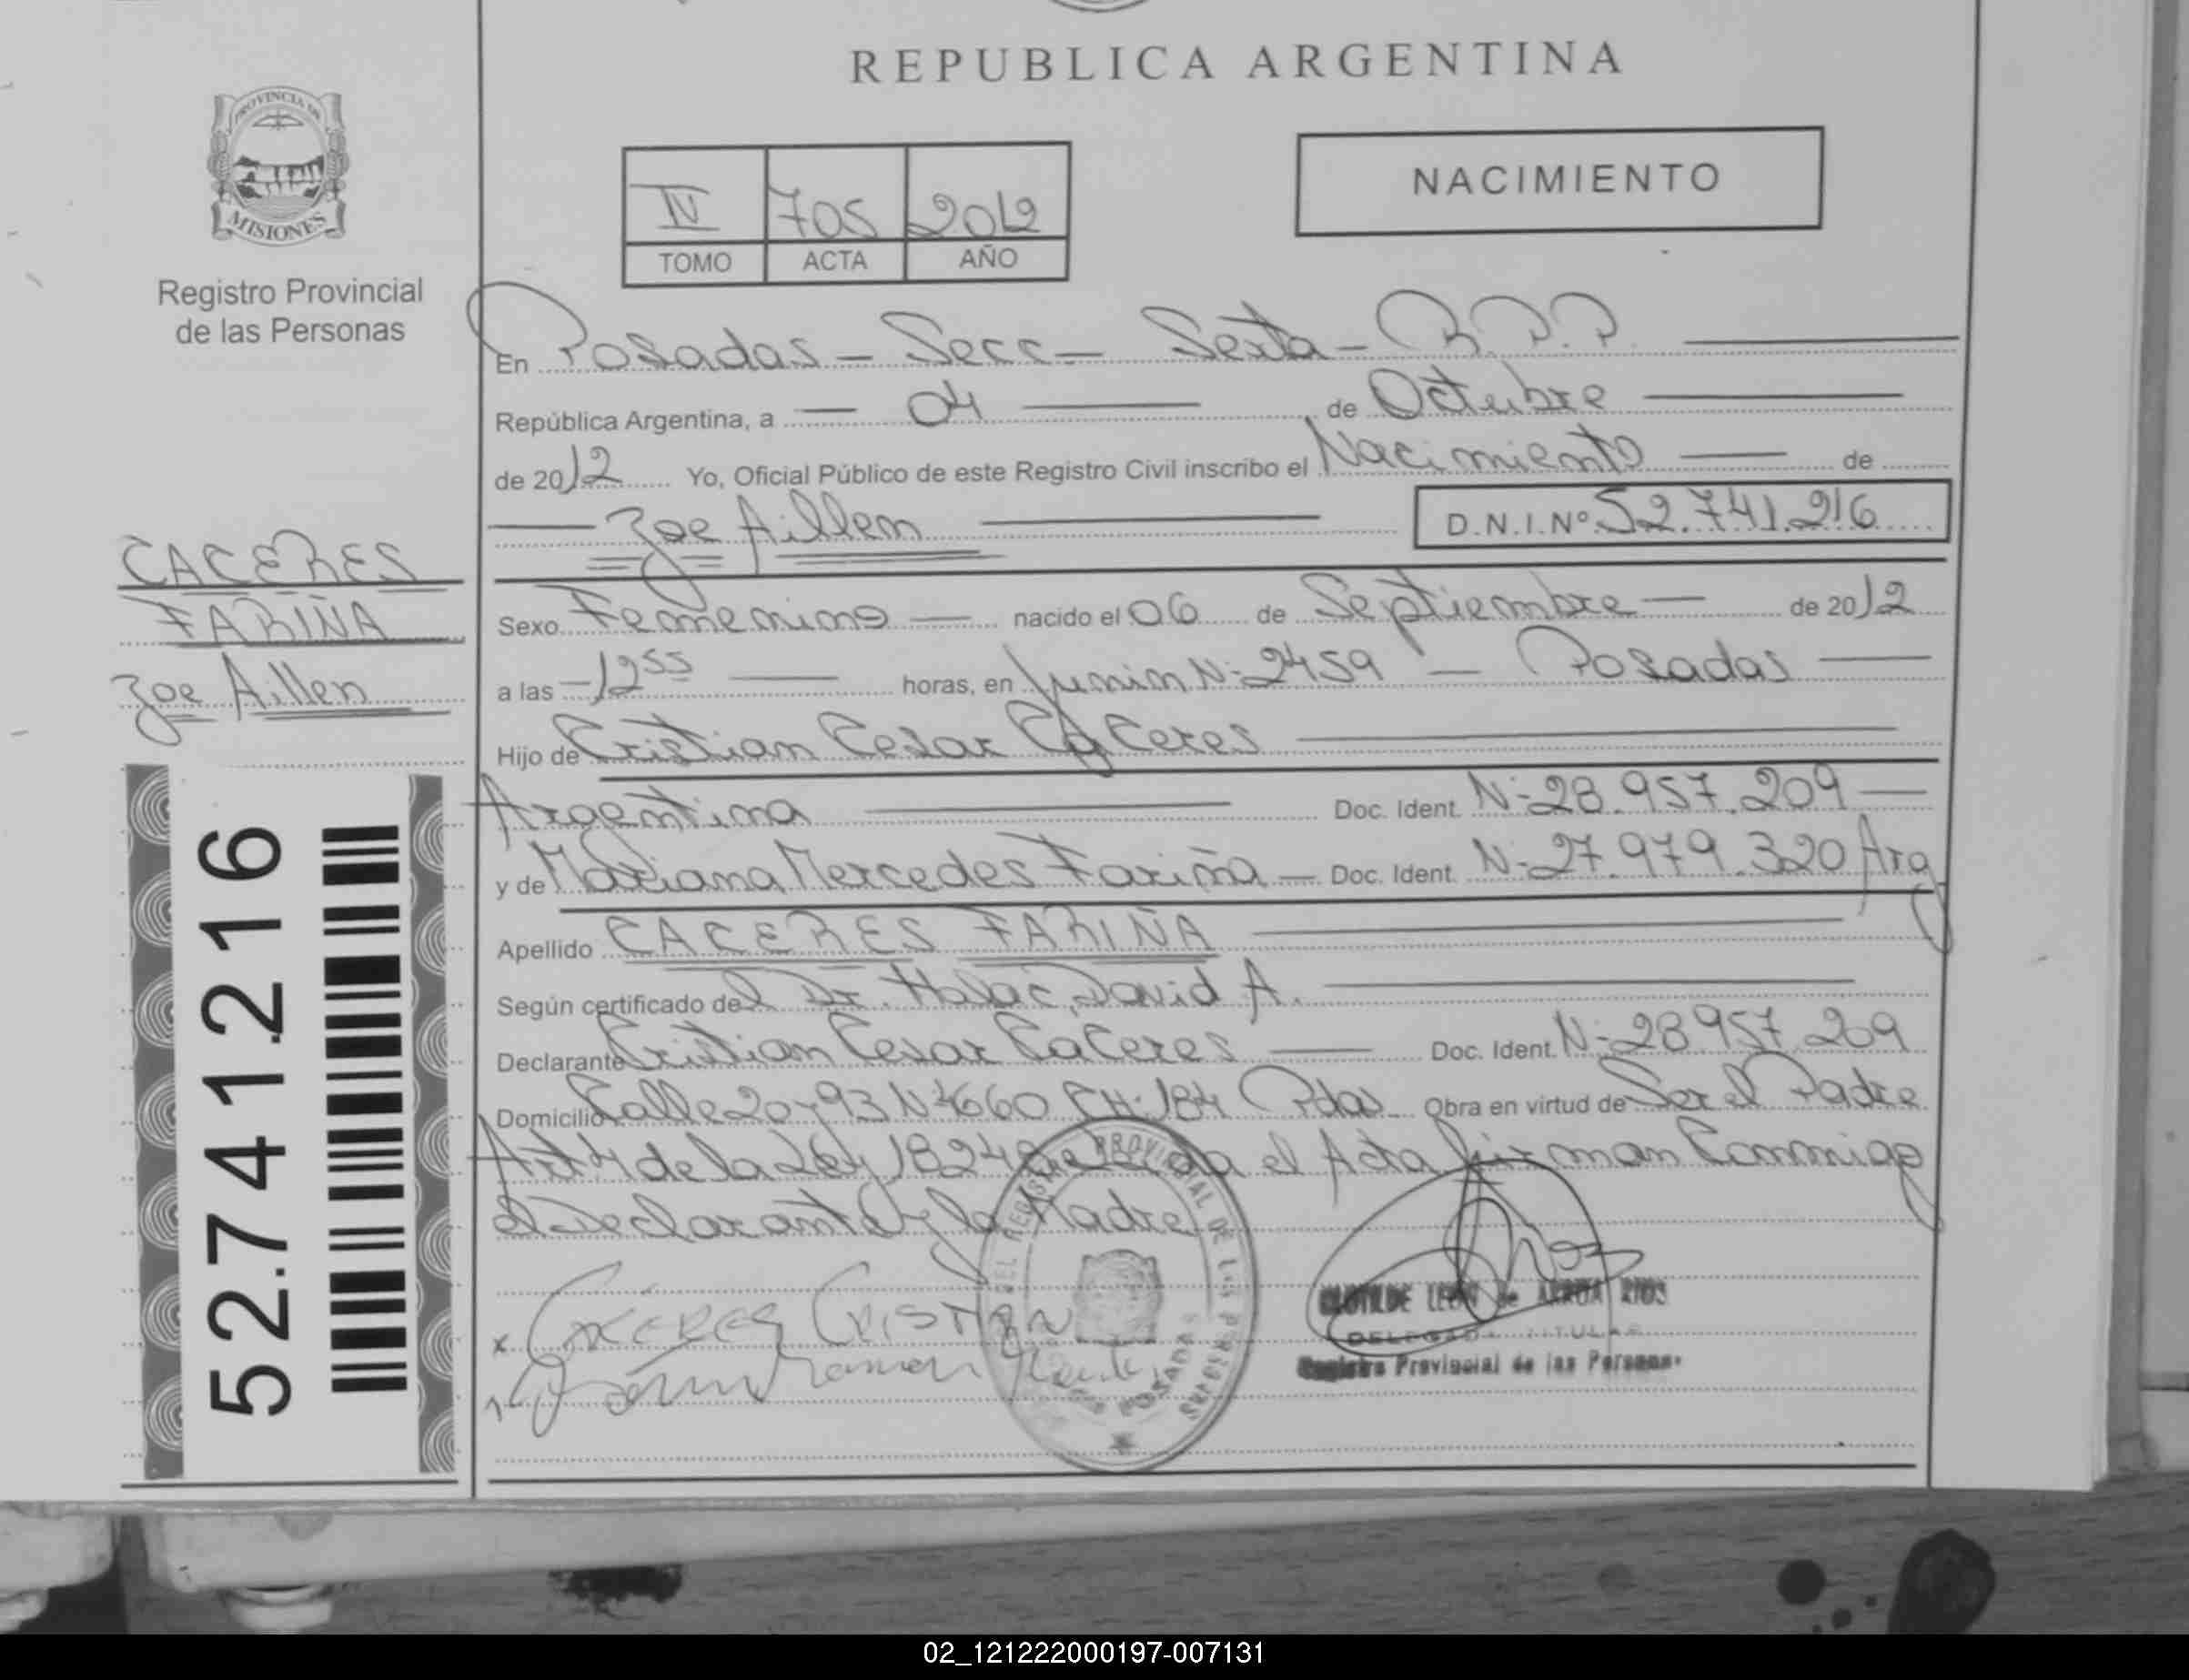 REPUBLICA ARGENTINA
PROVINCIA DE
MISIONES
Registro Provincial
de las Personas
NACIMIENTO
IV 705 2012
TOMO ACTA AÑO
En Posadas - Secc - Sexta - R.P.P.
República Argentina, a — 04 — de Octubre
de 2012 Yo, Oficial Público de este Registro Civil inscribo el Nacimiento — de
Zoe Aillen
D.N.I.Nº 52.741.216
CACERES
FARIÑA
Zoe Aillen
52.741.216
Sexo Femenino — nacido el 06 de Septiembre — de 2012
a las - 12 55 — horas, en Junin N: 2459 - Posadas
Hijo de Cristian Cesar CaCeres
Argentina — Doc. Ident. N: 28.957.209
y de Mariana Mercedes Fariña — Doc. Ident. N: 27.979.320 Arg
Apellido CACERES FARIÑA
Según certificado del Dr. David A.
Declarante Cristian Cesar CaCeres — Doc. Ident. N: 28957.209
Domicilio Calle 20 y 93 Nº 4660 CH: 184 Pdas Obra en virtud de Ser el Padre
Art 4 de la Ley 18248 el Acta firman Conmigo
el Declarante y la Madre
x CACERES CRISTIAN
CLOTILDE LEON de ARRUA RIOS
DELEGADA TITULAR
Registro Provincial de las Personas
02_121222000197-007131